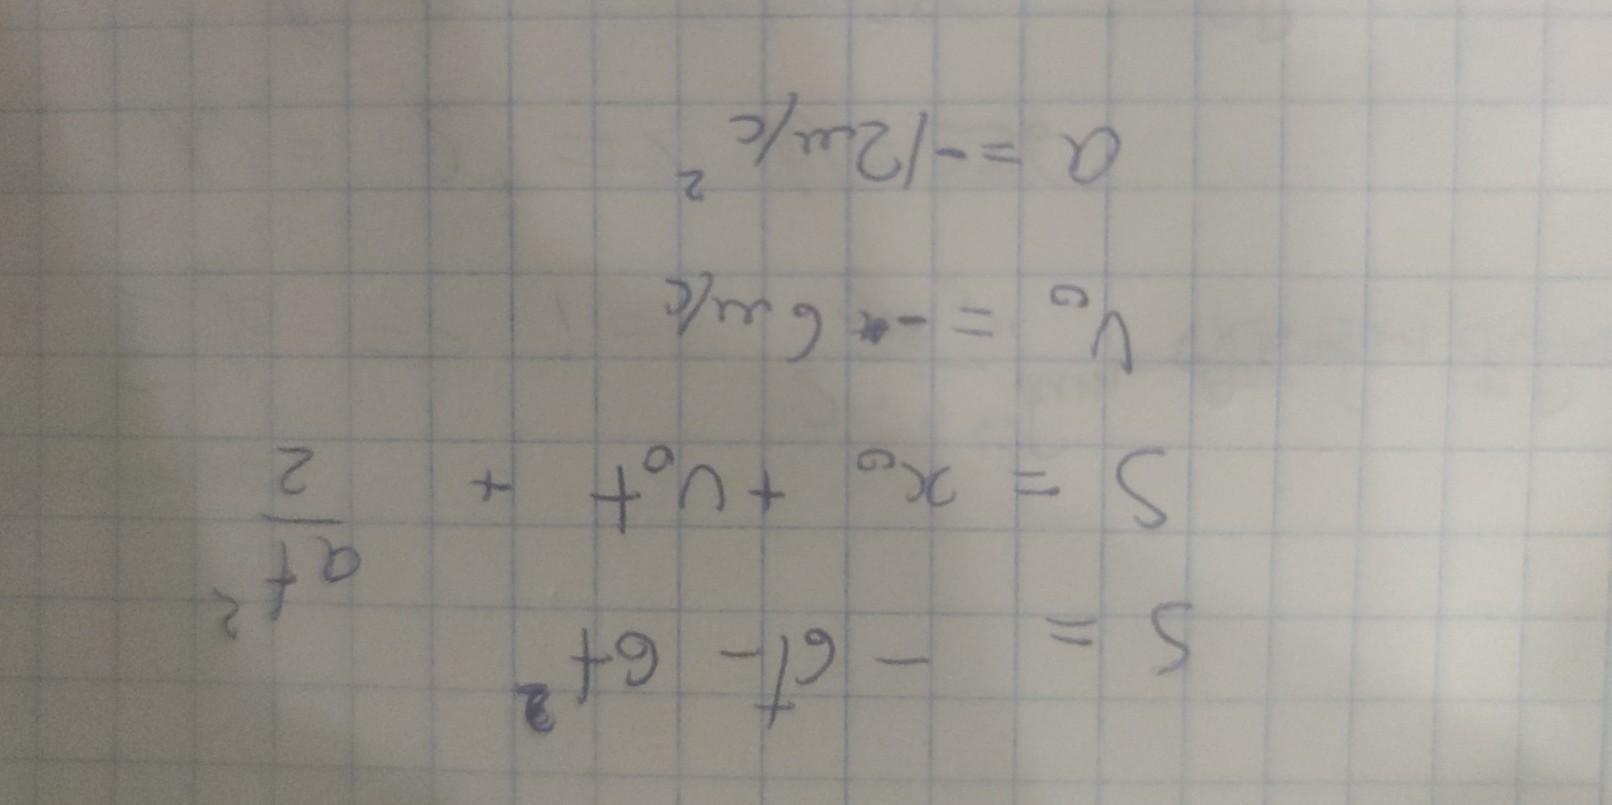 S = - 6t - 6t²
S = x₀ + v₀t + at²/2
V₀ = - 6 м/с
a = -12 м/с²